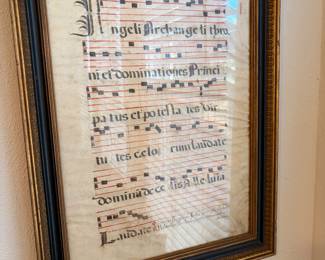 Angeli Archangeli thro
ni et dominationes Princi
patus et potesta tes Vir
tu tes celo rum laudate
dominū de ce lis Alleluia
Laudate